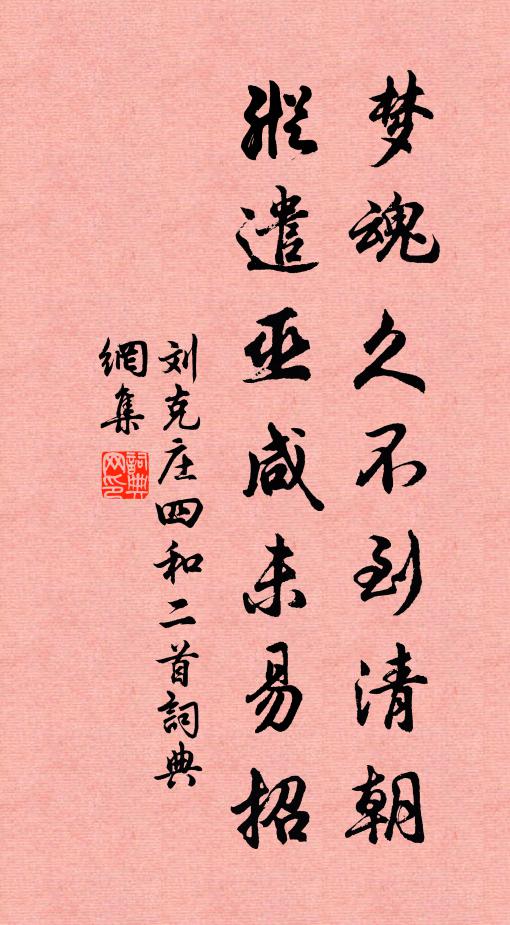 梦魂久不到清朝
縱遣巫咸未易招
刘克庄四和二首詞典
網集
詞典网印